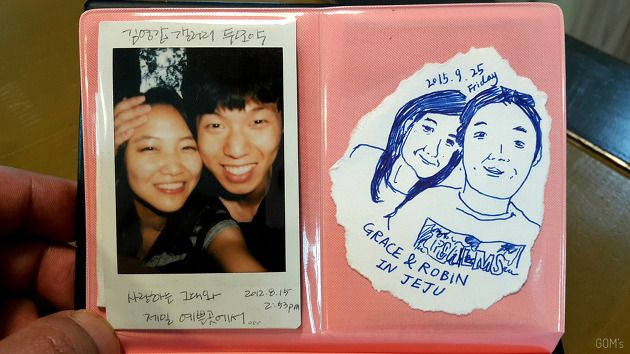 김영갑 갤러리 두모악
사랑하는 그대와
제일 예쁜곳에서...
2012.8.15
2:53pm
2015.9.25
Friday
GRACE & ROBIN
IN JEJU
GOM's